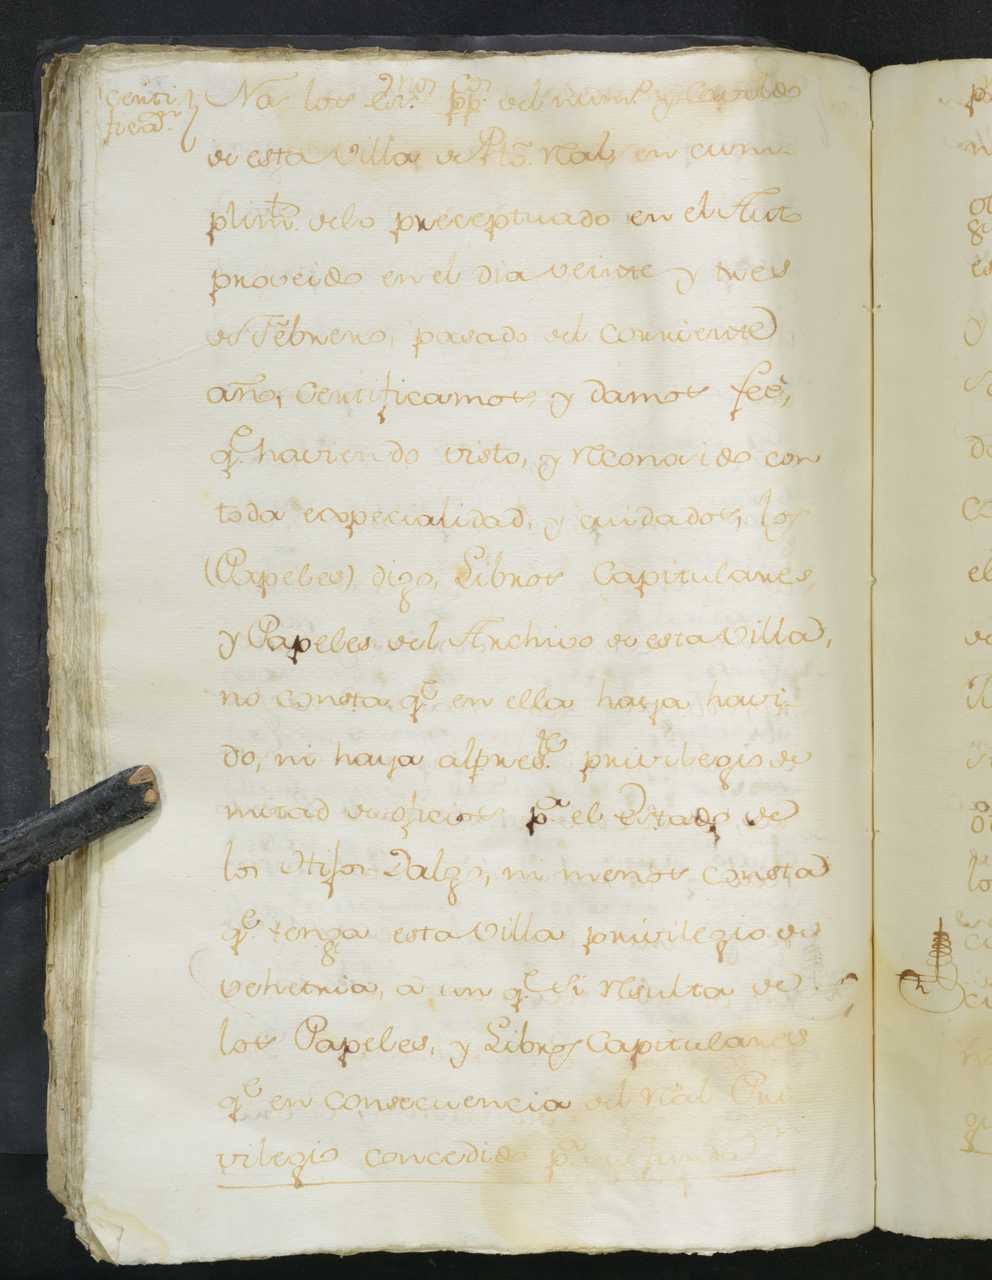 Certi
ficaon.
Nos los Esnos pp.cos del num.o y Cavildo
de esta Villa de Pto. Real, en cum-
plimto. delo preceptuado en el Auto
proveido en el dia veinte y tres
de Febrero, pasado del corriente
año, Certificamos, y damos feè,
q.e haviendo visto, y reconocido con
toda especialidad, y cuidados, los
(Papeles) digo, Libros Capitulares,
y Papeles del Archivo de esta Villa,
no consta, q.e en ella haya havi-
do, ni haya alpres.te privilegio de
mitad de oficios p.a el Estado de
los Hijos Dalgo, ni menos consta
q.e tenga esta Villa privilegio de
vehetria, a un q.e si resulta de
los Papeles, y Libros Capitulares
q.e en consecuencia del Real Pri-
vilegio concedido p.a